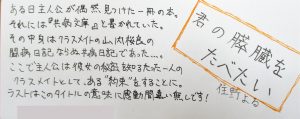 ある日主人公が偶然見つけた一冊の本。
それには『共病文庫』と書かれていた。
その中身はクラスメイトの山内桜良の
闘病日記ならぬ共病日記であった…。
ここで主人公は彼女の秘密を知るたった一人の
クラスメイトとして、ある“約束”をすることに。
ラストはこのタイトルの意味に感動間違い無しです!
君の膵臓を
たべたい
住野よる